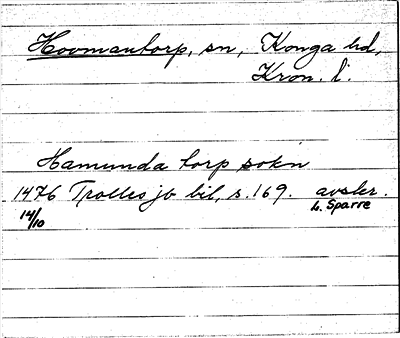 Hovmantorp, sn, Konga hd,
Kron. l.
Hamunda torp sokn
1476 Trolles jb bil, s. 169. avskr.
14/10 L. Sparre